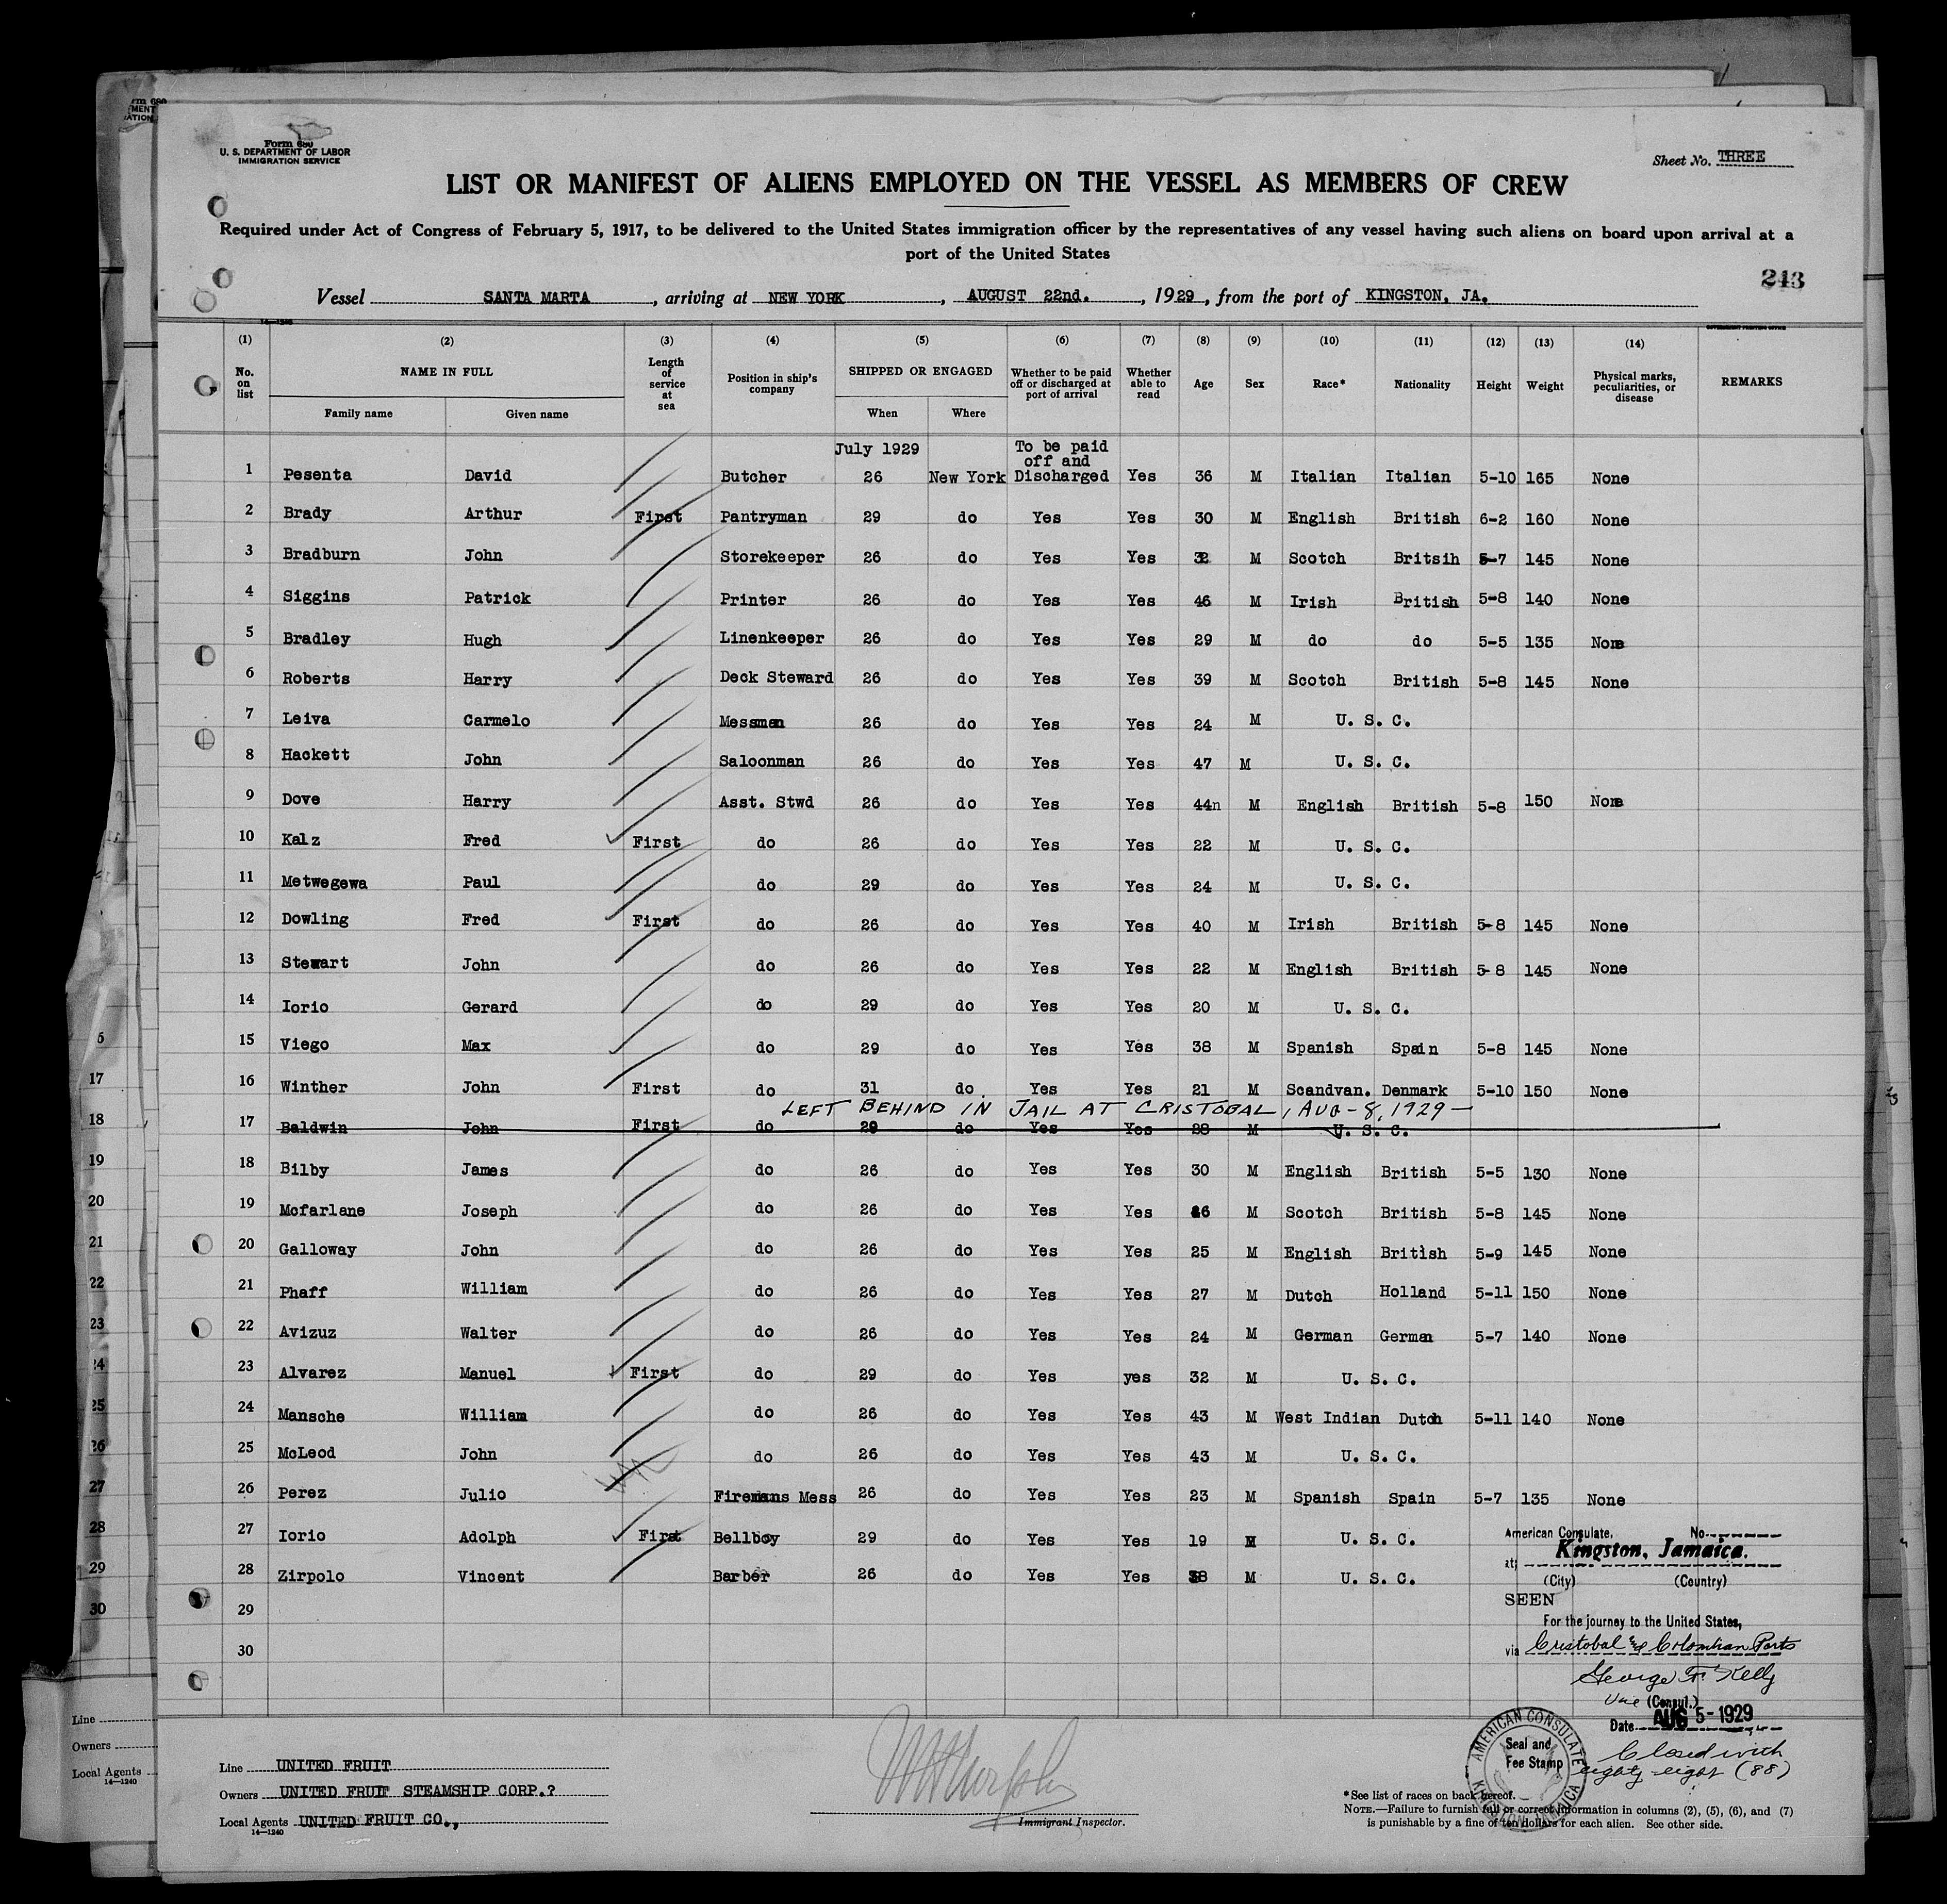 Form 680
U. S. DEPARTMENT OF LABOR
IMMIGRATION SERVICE
Sheet No. THREE
LIST OR MANIFEST OF ALIENS EMPLOYED ON THE VESSEL AS MEMBERS OF CREW
Required under Act of Congress of February 5, 1917, to be delivered to the United States immigration officer by the representatives of any vessel having such aliens on board upon arrival at a
port of the United States
243
Vessel SANTA MARTA, arriving at NEW YORK, AUGUST 22nd., 1929, from the port of KINGSTON, JA.
14—1240
GOVERNMENT PRINTING OFFICE
(1) (2) (3) (4) (5) (6) (7) (8) (9) (10) (11) (12) (13) (14)
No. on list NAME IN FULL Family name Given name Length of service at sea Position in ship's company SHIPPED OR ENGAGED When Where Whether to be paid off or discharged at port of arrival Whether able to read Age Sex Race* Nationality Height Weight Physical marks, peculiarities, or disease REMARKS
July 1929 To be paid off and
1 Pesenta David Butcher 26 New York Discharged Yes 36 M Italian Italian 5-10 165 None
2 Brady Arthur First Pantryman 29 do Yes Yes 30 M English British 6-2 160 None
3 Bradburn John Storekeeper 26 do Yes Yes 32 M Scotch Britsih 5-7 145 None
4 Siggins Patrick Printer 26 do Yes Yes 46 M Irish British 5-8 140 None
5 Bradley Hugh Linenkeeper 26 do Yes Yes 29 M do do 5-5 135 None
6 Roberts Harry Deck Steward 26 do Yes Yes 39 M Scotch British 5-8 145 None
7 Leiva Carmelo Messman 26 do Yes Yes 24 M U. S. C.
8 Hackett John Saloonman 26 do Yes Yes 47 M U. S. C.
9 Dove Harry Asst. Stwd 26 do Yes Yes 44n M English British 5-8 150 None
10 Kalz Fred First do 26 do Yes Yes 22 M U. S. C.
11 Metwegewa Paul do 29 do Yes Yes 24 M U. S. C.
12 Dowling Fred First do 26 do Yes Yes 40 M Irish British 5-8 145 None
13 Stewart John do 26 do Yes Yes 22 M English British 5-8 145 None
14 Iorio Gerard do 29 do Yes Yes 20 M U. S. C.
15 Viego Max do 29 do Yes Yes 38 M Spanish Spain 5-8 145 None
16 Winther John First do 31 do Yes Yes 21 M Scandvan. Denmark 5-10 150 None
LEFT BEHIND IN JAIL AT CRISTOBAL, AUG-8, 1929-
17 Baldwin John First do 29 do Yes Yes 28 M U. S. C.
18 Bilby James do 26 do Yes Yes 30 M English British 5-5 130 None
19 Mcfarlane Joseph do 26 do Yes Yes M Scotch British 5-8 145 None
20 Galloway John do 26 do Yes Yes 25 M English British 5-9 145 None
21 Phaff William do 26 do Yes Yes 27 M Dutch Holland 5-11 150 None
22 Avizuz Walter do 26 do Yes Yes 24 M German German 5-7 140 None
23 Alvarez Manuel First do 29 do Yes yes 32 M U. S. C.
24 Mansche William do 26 do Yes Yes 43 M West Indian Dutch 5-11 140 None
25 McLeod John do 26 do Yes Yes 43 M U. S. C.
26 Perez Julio Firemans Mess 26 do Yes Yes 23 M Spanish Spain 5-7 135 None
27 Iorio Adolph First Bellboy 29 do Yes Yes 19 M U. S. C.
28 Zirpolo Vincent Barber 26 do Yes Yes 38 M U. S. C.
29
30
American Consulate, No.
at Kingston, Jamaica.
(City) (Country)
SEEN
For the journey to the United States,
via Cristobal and Colombian Ports
George F. Kelly
Vice (Consul.)
Date AUG 5-1929
Closed with
eighty-eight (88)
AMERICAN CONSULATE
KINGSTON, JAMAICA
Seal and
Fee Stamp
Line UNITED FRUIT
Owners UNITED FRUIT STEAMSHIP CORP.?
Local Agents UNITED FRUIT CO.,
14—1240
Immigrant Inspector.
*See list of races on back hereof.
NOTE.—Failure to furnish full or correct information in columns (2), (5), (6), and (7)
is punishable by a fine of ten dollars for each alien. See other side.
17
18
19
20
21
22
23
24
25
26
27
28
29
30
Line
Owners
Local Agents
14—1240